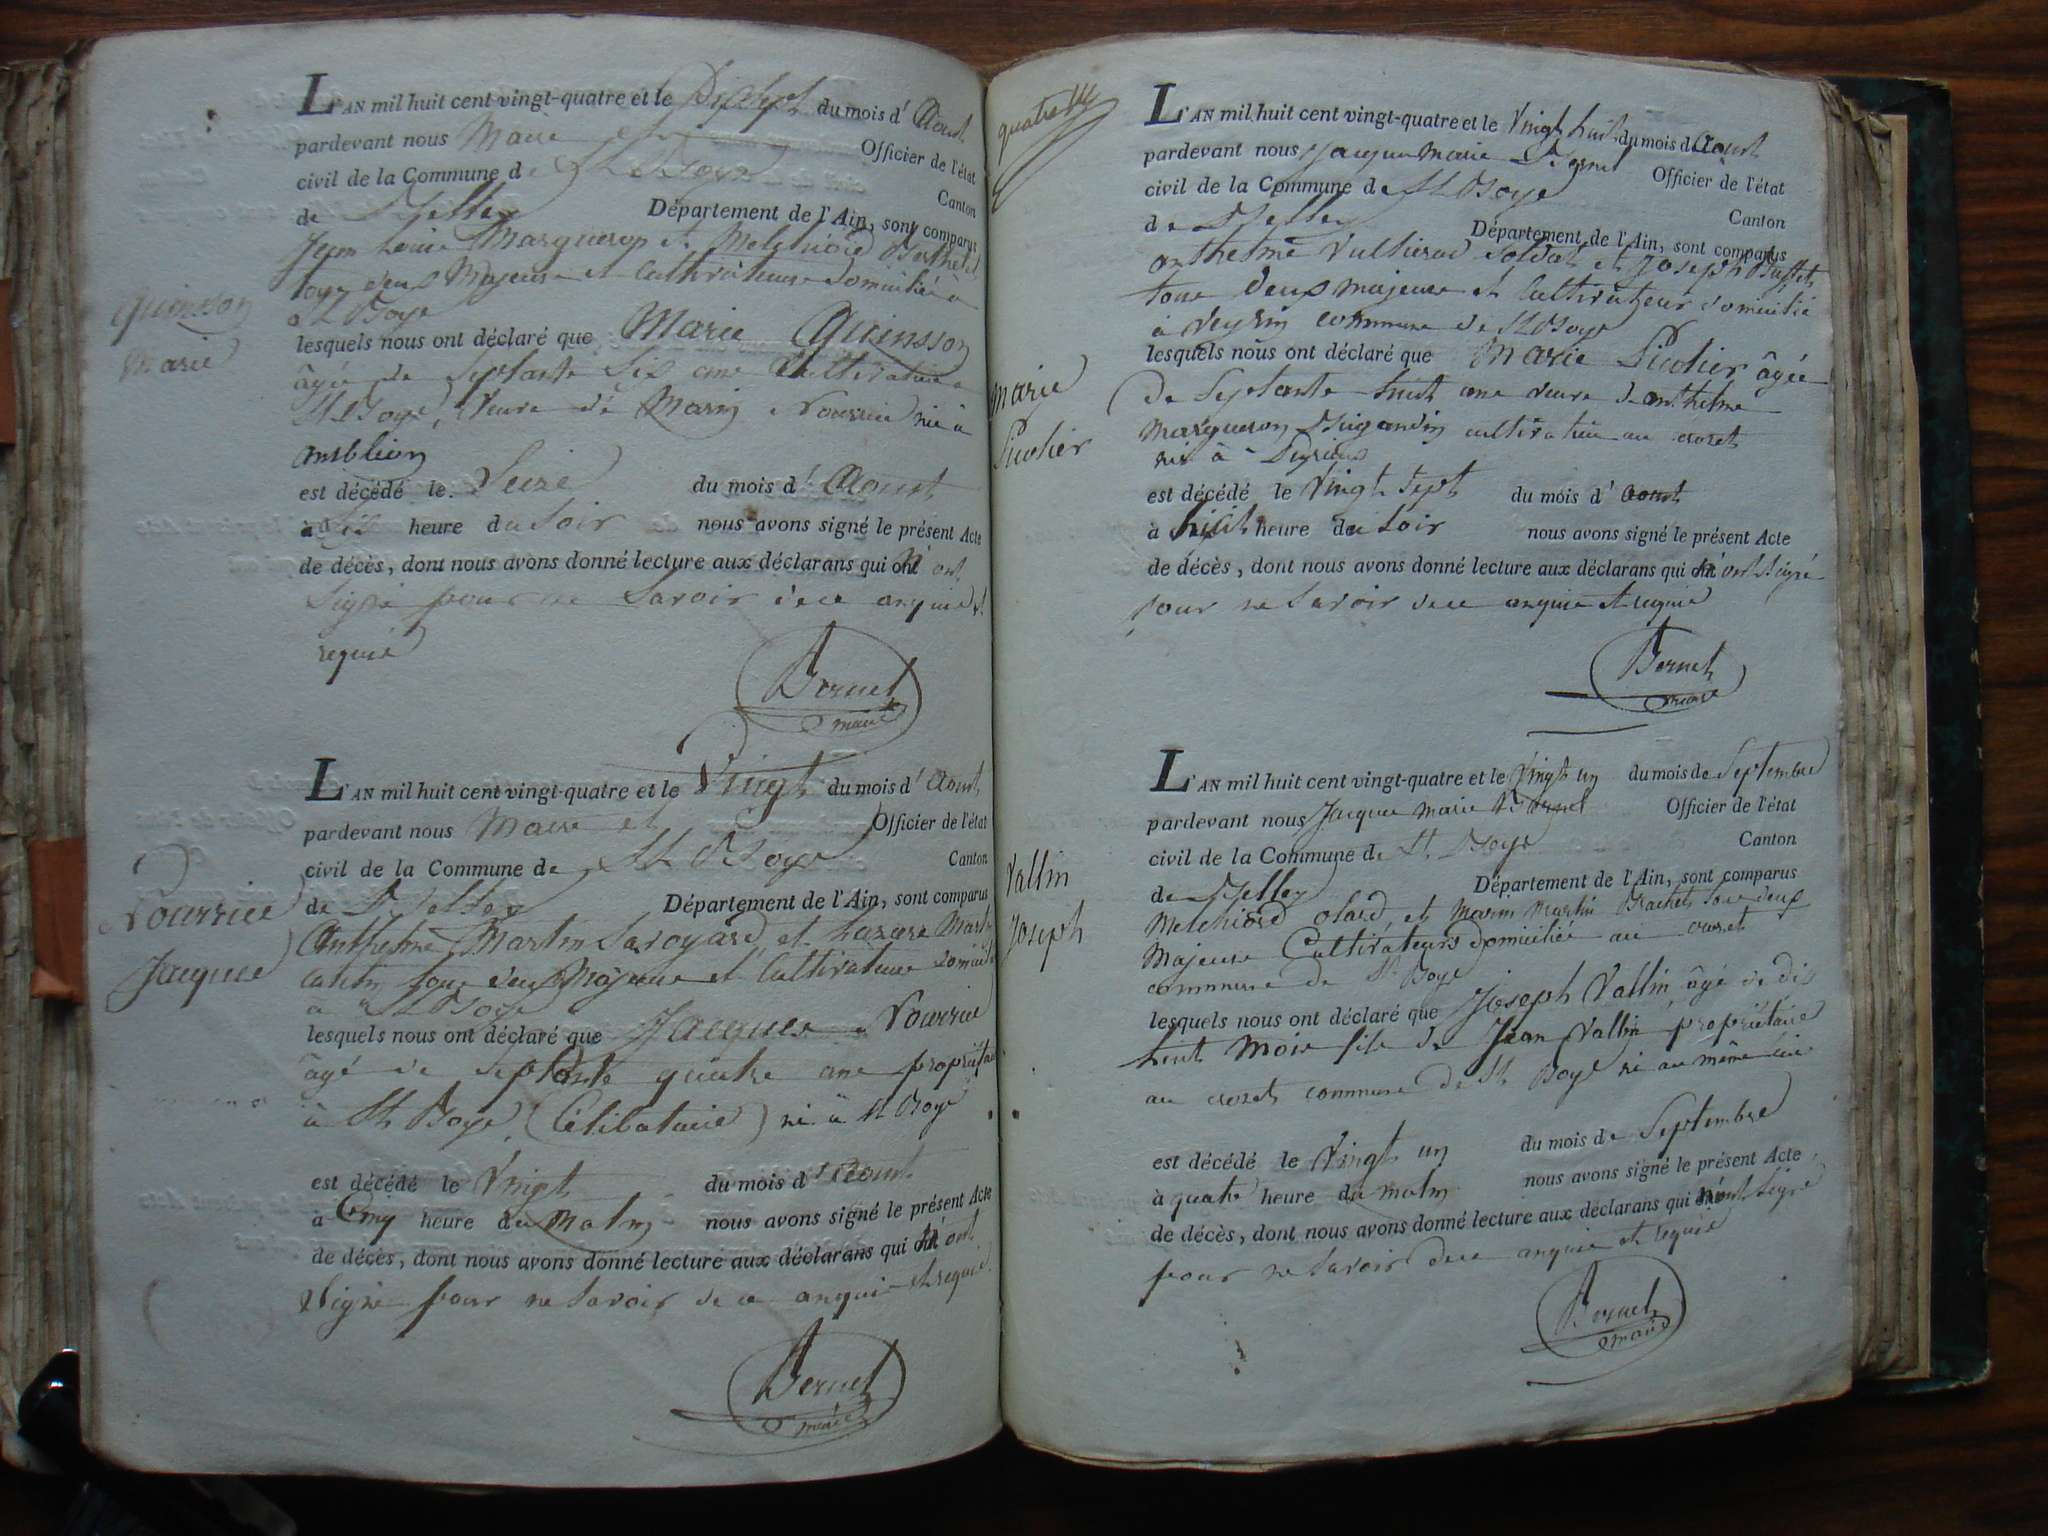 L'AN mil huit cent vingt-quatre et le Dix sept du mois d'Aoust
pardevant nous Maire et Officier de l'état
civil de la Commune de St Boys Canton
de Belley Département de l'Ain, sont comparus
Jean Louis Marqueron et Melchiord Berthet
tous deux Majeurs et Cultivateurs domiciliés à
St Boys
Quinson
Marie
lesquels nous ont déclaré que Marie Quinsson
âgée de Septante Six ans Cultivatrice à
St Boys, Veuve de Marin Nourrice née à
Amblion
est décédé le Seize du mois d'Aoust
à Six heure du Soir nous avons signé le présent Acte
de décès, dont nous avons donné lecture aux déclarans qui n'ont
Signé pour ne Savoir de ce enquis et
requis
Bernet
maire
L'AN mil huit cent vingt-quatre et le Vingt du mois d'Aoust
pardevant nous Maire et Officier de l'état
civil de la Commune de St Boys Canton
de Belley Département de l'Ain, sont comparus
Nourrice
Jacques
Anthelme Martin Savoyard et Lazare Martin
Cantin tous deux Majeurs et Cultivateurs domiciliés
à St Boys
lesquels nous ont déclaré que Jacques Nourrice
âgé de Septante quatre ans propriétaire
à St Boys, (Célibataire) né à St Boys
est décédé le Vingt du mois d'Aoust
à Cinq heure du Matin nous avons signé le présent Acte
de décès, dont nous avons donné lecture aux déclarans qui n'ont
Signé pour ne Savoir de ce enquis et requis
Bernet
maire
quatre
L'AN mil huit cent vingt-quatre et le Vingt huit du mois d'Aoust
pardevant nous Jacques Marie Bernet Officier de l'état
civil de la Commune de St Boys Canton
de Belley Département de l'Ain, sont comparus
Anthelme Vullierod Soldat et Joseph Buffet
tous deux majeurs et Cultivateurs domiciliés
à Veyrin commune de St Boys
Marie
Picolier
lesquels nous ont déclaré que Marie Picolier âgée
De Septante huit ans veuve d'anthelme
Marqueron cultivatrice au crozet
née à
est décédé le Vingt Sept du mois d'Aoust
à huit heure du Soir nous avons signé le présent Acte
de décès, dont nous avons donné lecture aux déclarans qui n'ont Signé
pour ne Savoir de ce enquis et requis
Bernet
maire
L'AN mil huit cent vingt-quatre et le Vingt un du mois de Septembre
pardevant nous Jacques Marie Bernet Officier de l'état
civil de la Commune de St Boys Canton
de Belley Département de l'Ain, sont comparus
Vallin
Joseph
Melchiord olard et Marin Martin Brachet tous deux
Majeurs Cultivateurs domiciliés au crozet
commune de St Boys
lesquels nous ont déclaré que Joseph Vallin âgé de dix
huit mois fils de Jean Vallin propriétaire
au crozet commune de St Boys né au même lieu
est décédé le Vingt un du mois de Septembre
à quatre heure du matin nous avons signé le présent Acte
de décès, dont nous avons donné lecture aux déclarans qui n'ont Signé
pour ne Savoir de ce enquis et requis
Bernet
maire